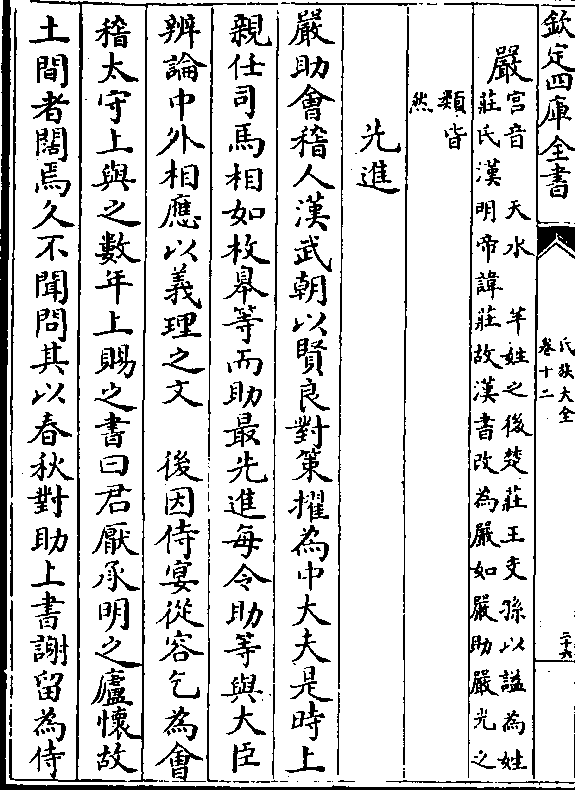 欽定四庫全書
氏族大全
卷十二
二十六
嚴
宮音　天水　芊姓之後楚莊王支孫以謚為姓
莊氏漢明帝諱莊故漢書改為嚴如嚴助嚴光之
類皆
然
先進
嚴助會稽人漢武朝以賢良對策擢為中大夫是時上
親任司馬相如枚皋等而助最先進每令助等與大臣
辨論中外相應以義理之文　後因侍宴從容乞為會
稽太守上與之數年上賜之書曰君厭承明之廬懷故
土間者闊焉久不聞問其以春秋對助上書謝留為侍